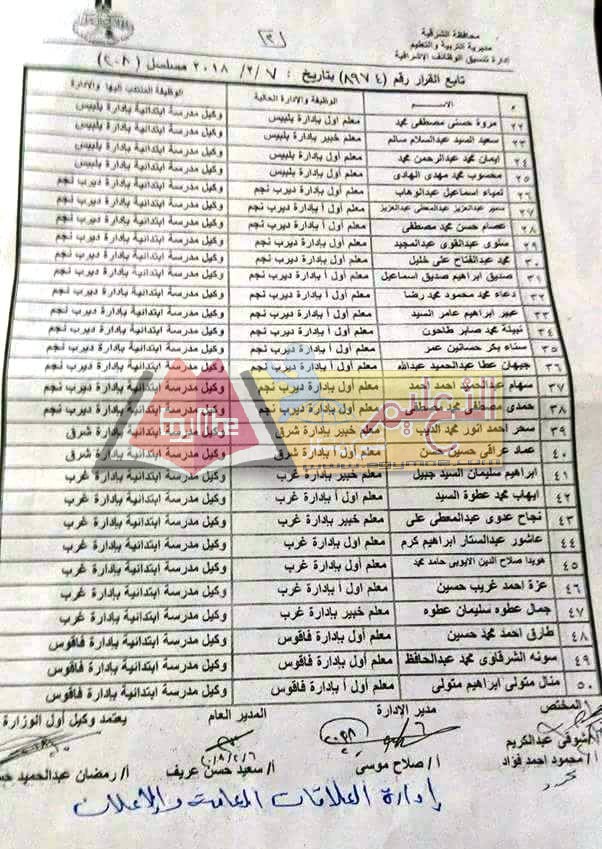 محافظة الشرقية
مديرية التربية والتعليم
إدارة تنسيق الوظائف الإشرافية
(٣)
تابع القرار رقم (٨٩٧٤) بتاريخ : ٧ / ٢ / ٢٠١٨ مسلسل (٢٠٨)
م الاســـم الوظيفة والإدارة الحالية الوظيفة المنتدب إليها والإدارة
٢٢ مروة حسنى مصطفى محمد معلم أول بإدارة بلبيس وكيل مدرسة ابتدائية بإدارة بلبيس
٢٣ سعيد السيد عبدالسلام سالم معلم خبير بإدارة بلبيس وكيل مدرسة ابتدائية بإدارة بلبيس
٢٤ ايمان محمد عبدالرحمن محمد معلم أول بإدارة بلبيس وكيل مدرسة ابتدائية بإدارة بلبيس
٢٥ محسوب محمد مهدى الهادى معلم أول بإدارة بلبيس وكيل مدرسة ابتدائية بإدارة بلبيس
٢٦ لمياء اسماعيل عبدالوهاب معلم أول أ بإدارة ديرب نجم وكيل مدرسة ابتدائية بإدارة ديرب نجم
٢٧ سمير عبدالعزيز عبدالمعطى عبدالعزيز معلم أول أ بإدارة ديرب نجم وكيل مدرسة ابتدائية بإدارة ديرب نجم
٢٨ عصام حسن محمد مصطفى معلم أول أ بإدارة ديرب نجم وكيل مدرسة ابتدائية بإدارة ديرب نجم
٢٩ سلوى عبدالقوى عبدالمجيد معلم أول أ بإدارة ديرب نجم وكيل مدرسة ابتدائية بإدارة ديرب نجم
٣٠ محمد عبدالفتاح على خليل معلم أول أ بإدارة ديرب نجم وكيل مدرسة ابتدائية بإدارة ديرب نجم
٣١ صديق ابراهيم صديق اسماعيل معلم أول أ بإدارة ديرب نجم وكيل مدرسة ابتدائية بإدارة ديرب نجم
٣٢ دعاء محمد محمود محمد رضا معلم أول أ بإدارة ديرب نجم وكيل مدرسة ابتدائية بإدارة ديرب نجم
٣٣ عبير ابراهيم عامر السيد معلم أول أ بإدارة ديرب نجم وكيل مدرسة ابتدائية بإدارة ديرب نجم
٣٤ نبيلة محمد صابر طاحون معلم أول أ بإدارة ديرب نجم وكيل مدرسة ابتدائية بإدارة ديرب نجم
٣٥ سناء بكر حسانين عمر معلم أول أ بإدارة ديرب نجم وكيل مدرسة ابتدائية بإدارة ديرب نجم
٣٦ جيهان عطا عبدالحميد عبدالله معلم أول أ بإدارة ديرب نجم وكيل مدرسة ابتدائية بإدارة ديرب نجم
٣٧ سهام عبدالحميد احمد احمد معلم أول بإدارة ديرب نجم وكيل مدرسة ابتدائية بإدارة ديرب نجم
٣٨ حمدى مصطفى محمد مصطفى معلم أول بإدارة ديرب نجم وكيل مدرسة ابتدائية بإدارة ديرب نجم
٣٩ سحر احمد انور محمد الديب معلم خبير بإدارة شرق وكيل مدرسة ابتدائية بإدارة شرق
٤٠ عماد عراقى حسين حسن معلم أول أ بإدارة شرق وكيل مدرسة ابتدائية بإدارة شرق
٤١ ابراهيم سليمان السيد جبيل معلم خبير بإدارة غرب وكيل مدرسة ابتدائية بإدارة غرب
٤٢ ايهاب محمد عطوة السيد معلم أول أ بإدارة غرب وكيل مدرسة ابتدائية بإدارة غرب
٤٣ نجاح عدوى عبدالمعطى على معلم خبير بإدارة غرب وكيل مدرسة ابتدائية بإدارة غرب
٤٤ عاشور عبدالستار ابراهيم كرم معلم أول بإدارة غرب وكيل مدرسة ابتدائية بإدارة غرب
٤٥ هويدا صلاح الدين الايوبى حامد محمد معلم أول أ بإدارة غرب وكيل مدرسة ابتدائية بإدارة غرب
٤٦ عزة احمد غريب حسين معلم أول أ بإدارة غرب وكيل مدرسة ابتدائية بإدارة غرب
٤٧ جمال عطوه سليمان عطوه معلم خبير بإدارة غرب وكيل مدرسة ابتدائية بإدارة غرب
٤٨ طارق احمد محمد حسين معلم أول بإدارة فاقوس وكيل مدرسة ابتدائية بإدارة فاقوس
٤٩ سونه الشرقاوى محمد عبدالحافظ معلم أول أ بإدارة فاقوس وكيل مدرسة ابتدائية بإدارة فاقوس
٥٠ منال متولى ابراهيم متولى معلم أول أ بإدارة فاقوس وكيل مدرسة ابتدائية بإدارة فاقوس
المختص مدير الإدارة المدير العام يعتمد وكيل أول الوزارة
شوقى عبدالكريم
أ/ محمود احمد فؤاد أ/ صلاح موسى أ/ سعيد حسن عريف أ/ رمضان عبدالحميد
إدارة العلاقات العامة والإعلان